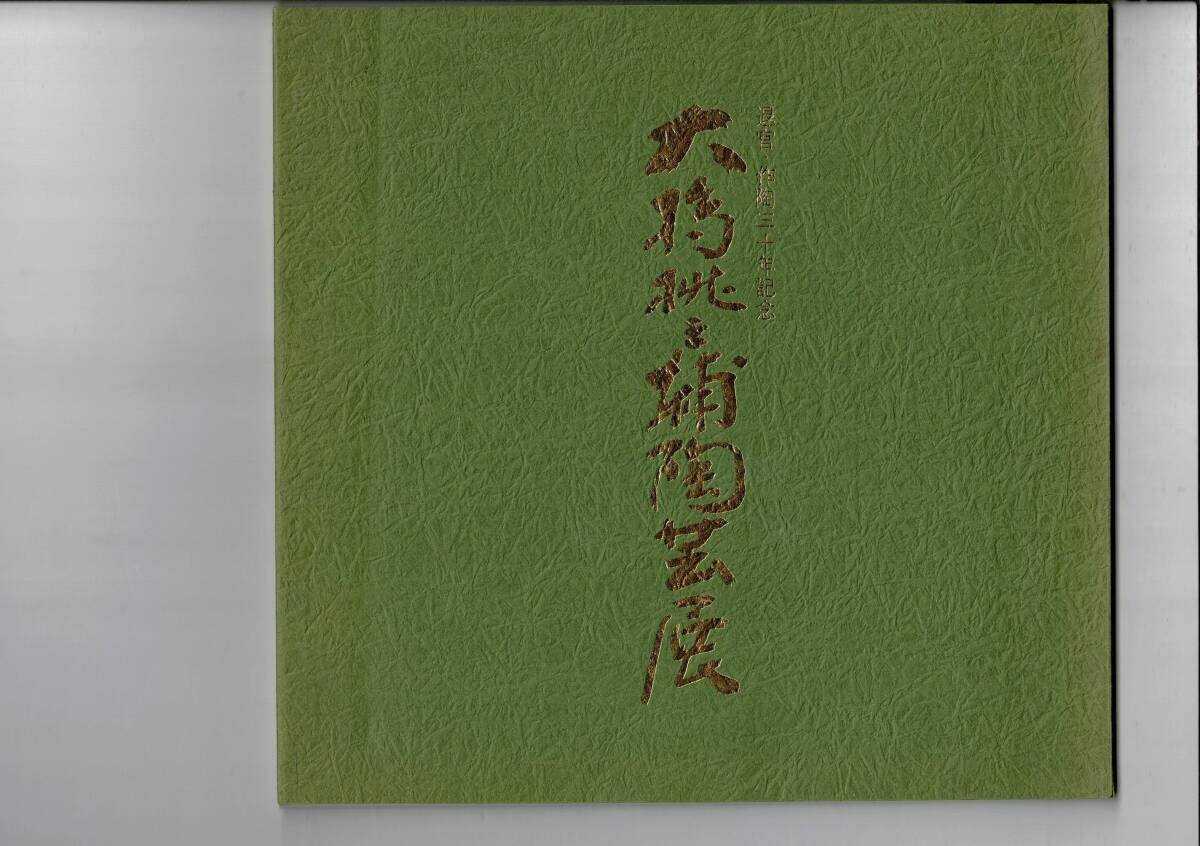 退官・作陶三十年記念
大 桃之輔陶芸展